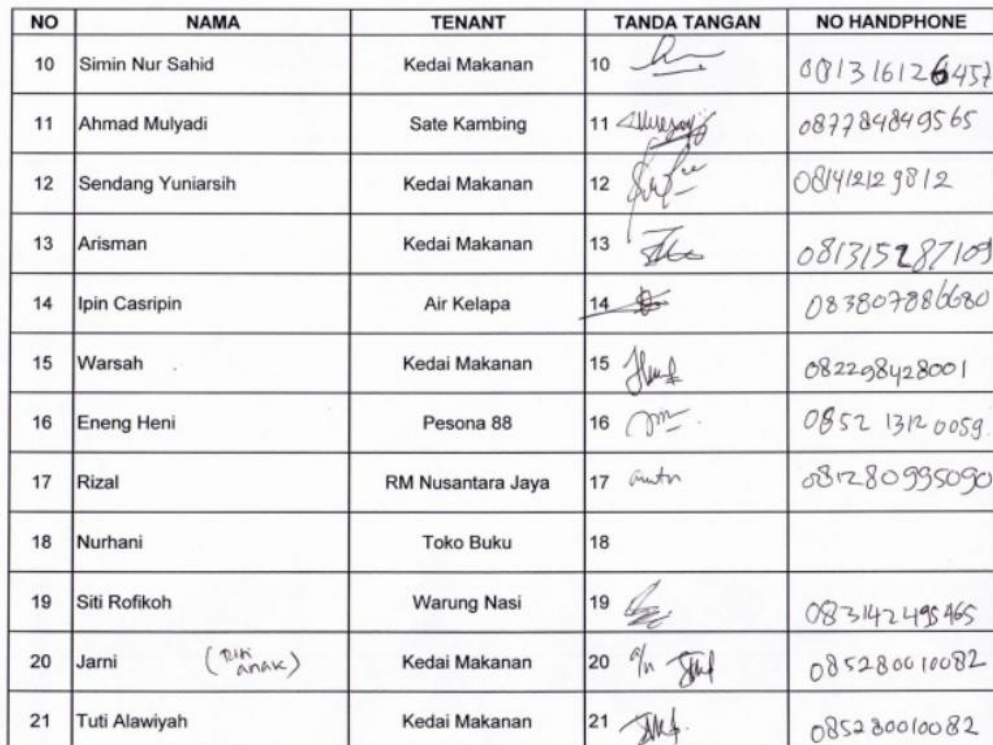 NO NAMA TENANT TANDA TANGAN NO HANDPHONE
10 Simin Nur Sahid Kedai Makanan 10
11 Ahmad Mulyadi Sate Kambing 11 087784849565
12 Sendang Yuniarsih Kedai Makanan 12 081412129812
13 Arisman Kedai Makanan 13 081315287109
14 Ipin Casripin Air Kelapa 14 083807886680
15 Warsah Kedai Makanan 15 082298428001
16 Eneng Heni Pesona 88 16 0852 1312 0059.
17 Rizal RM Nusantara Jaya 17 081280995090
18 Nurhani Toko Buku 18
19 Siti Rofikoh Warung Nasi 19 083142495465
20 Jarni ( anak) Kedai Makanan 20 a/n 085280010082
21 Tuti Alawiyah Kedai Makanan 21 085280010082